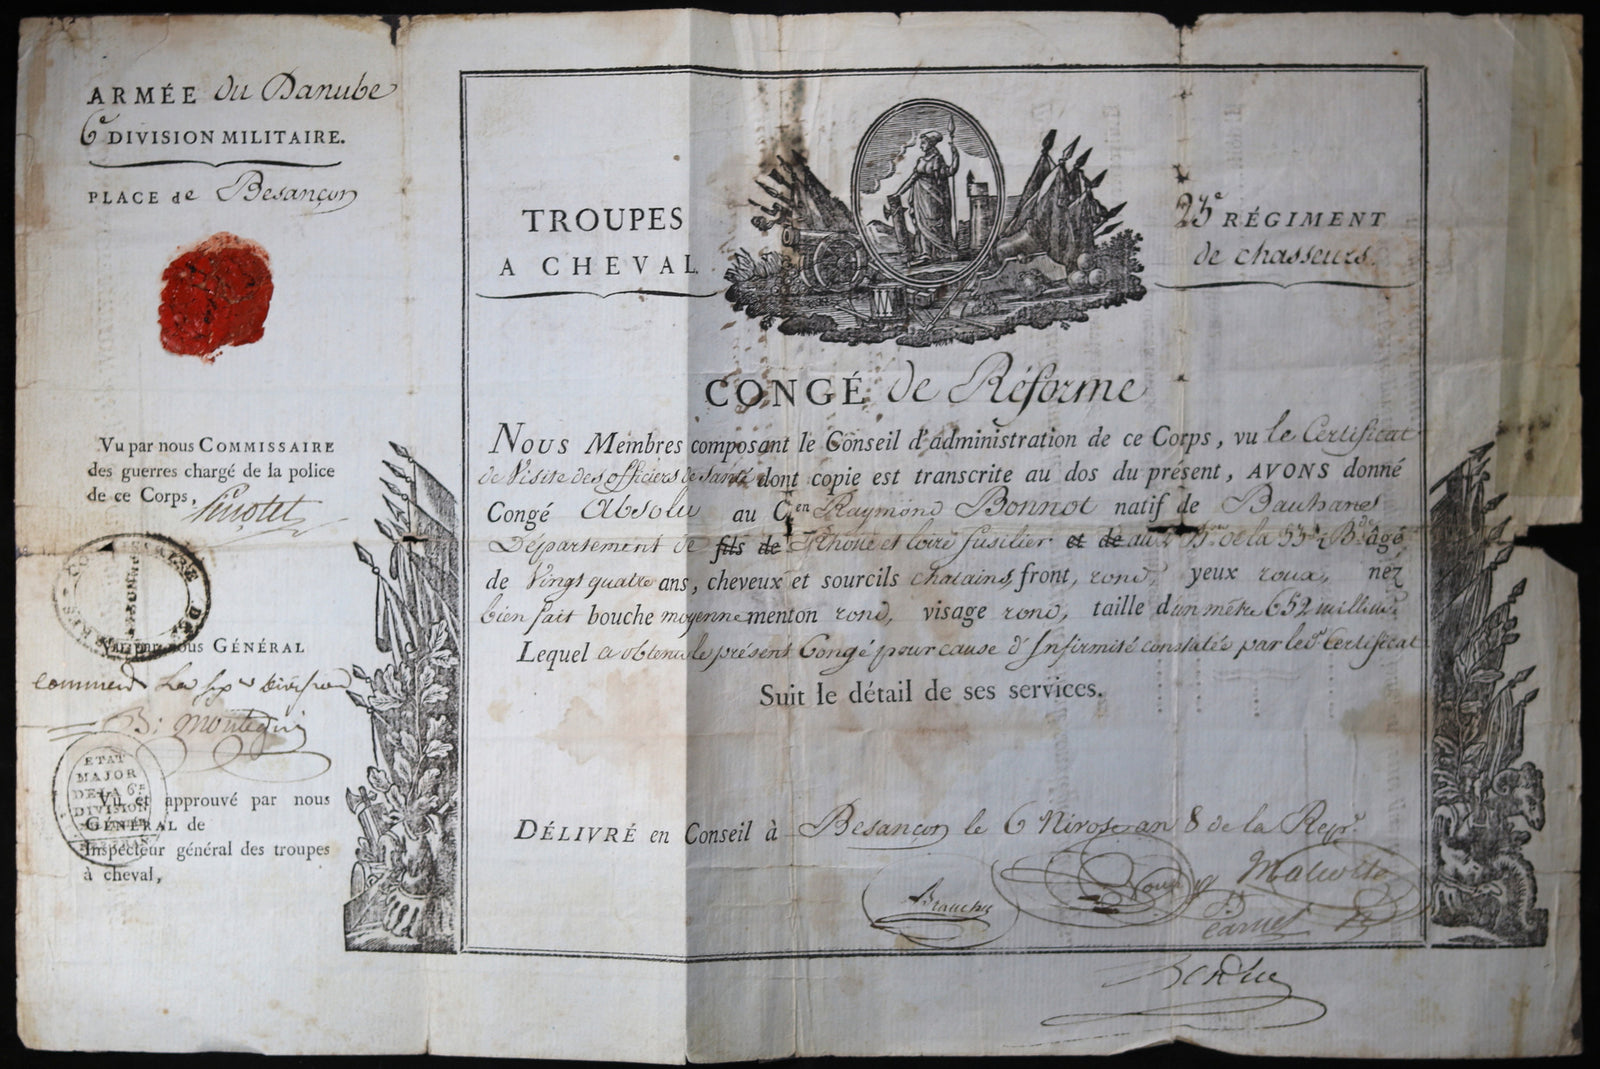 ARMÉE du Danube
6e DIVISION MILITAIRE.
PLACE de Besançon
TROUPES
A CHEVAL.
23e RÉGIMENT
de chasseurs.
CONGÉ de Réforme
NOUS Membres composant le Conseil d'administration de ce Corps, vu le Certificat
de Visite des officiers de santé dont copie est transcrite au dos du présent, AVONS donné
Congé Absolu au C.en Raymond Bonnot natif de
Département de fils de Rhône et loire fusilier et de au de la 53e âgé
de Vingt quatre ans, cheveux et sourcils chatains, front, rond, yeux roux, nez
bien fait bouche moyenne menton rond, visage rond, taille d'un mètre 652 millim.
Lequel a obtenu le présent Congé pour cause d'Infirmité constatée par led.t Certificat
Suit le détail de ses services.
DÉLIVRÉ en Conseil à Besançon le 6 Nivose an 8 de la Rep.
Vu par nous COMMISSAIRE
des guerres chargé de la police
de ce Corps,
Vu par nous GÉNÉRAL
Division
ETAT
MAJOR
DE LA 6E
DIVISION
Vu et approuvé par nous
GÉNÉRAL de
Inspecteur général des troupes
à cheval,